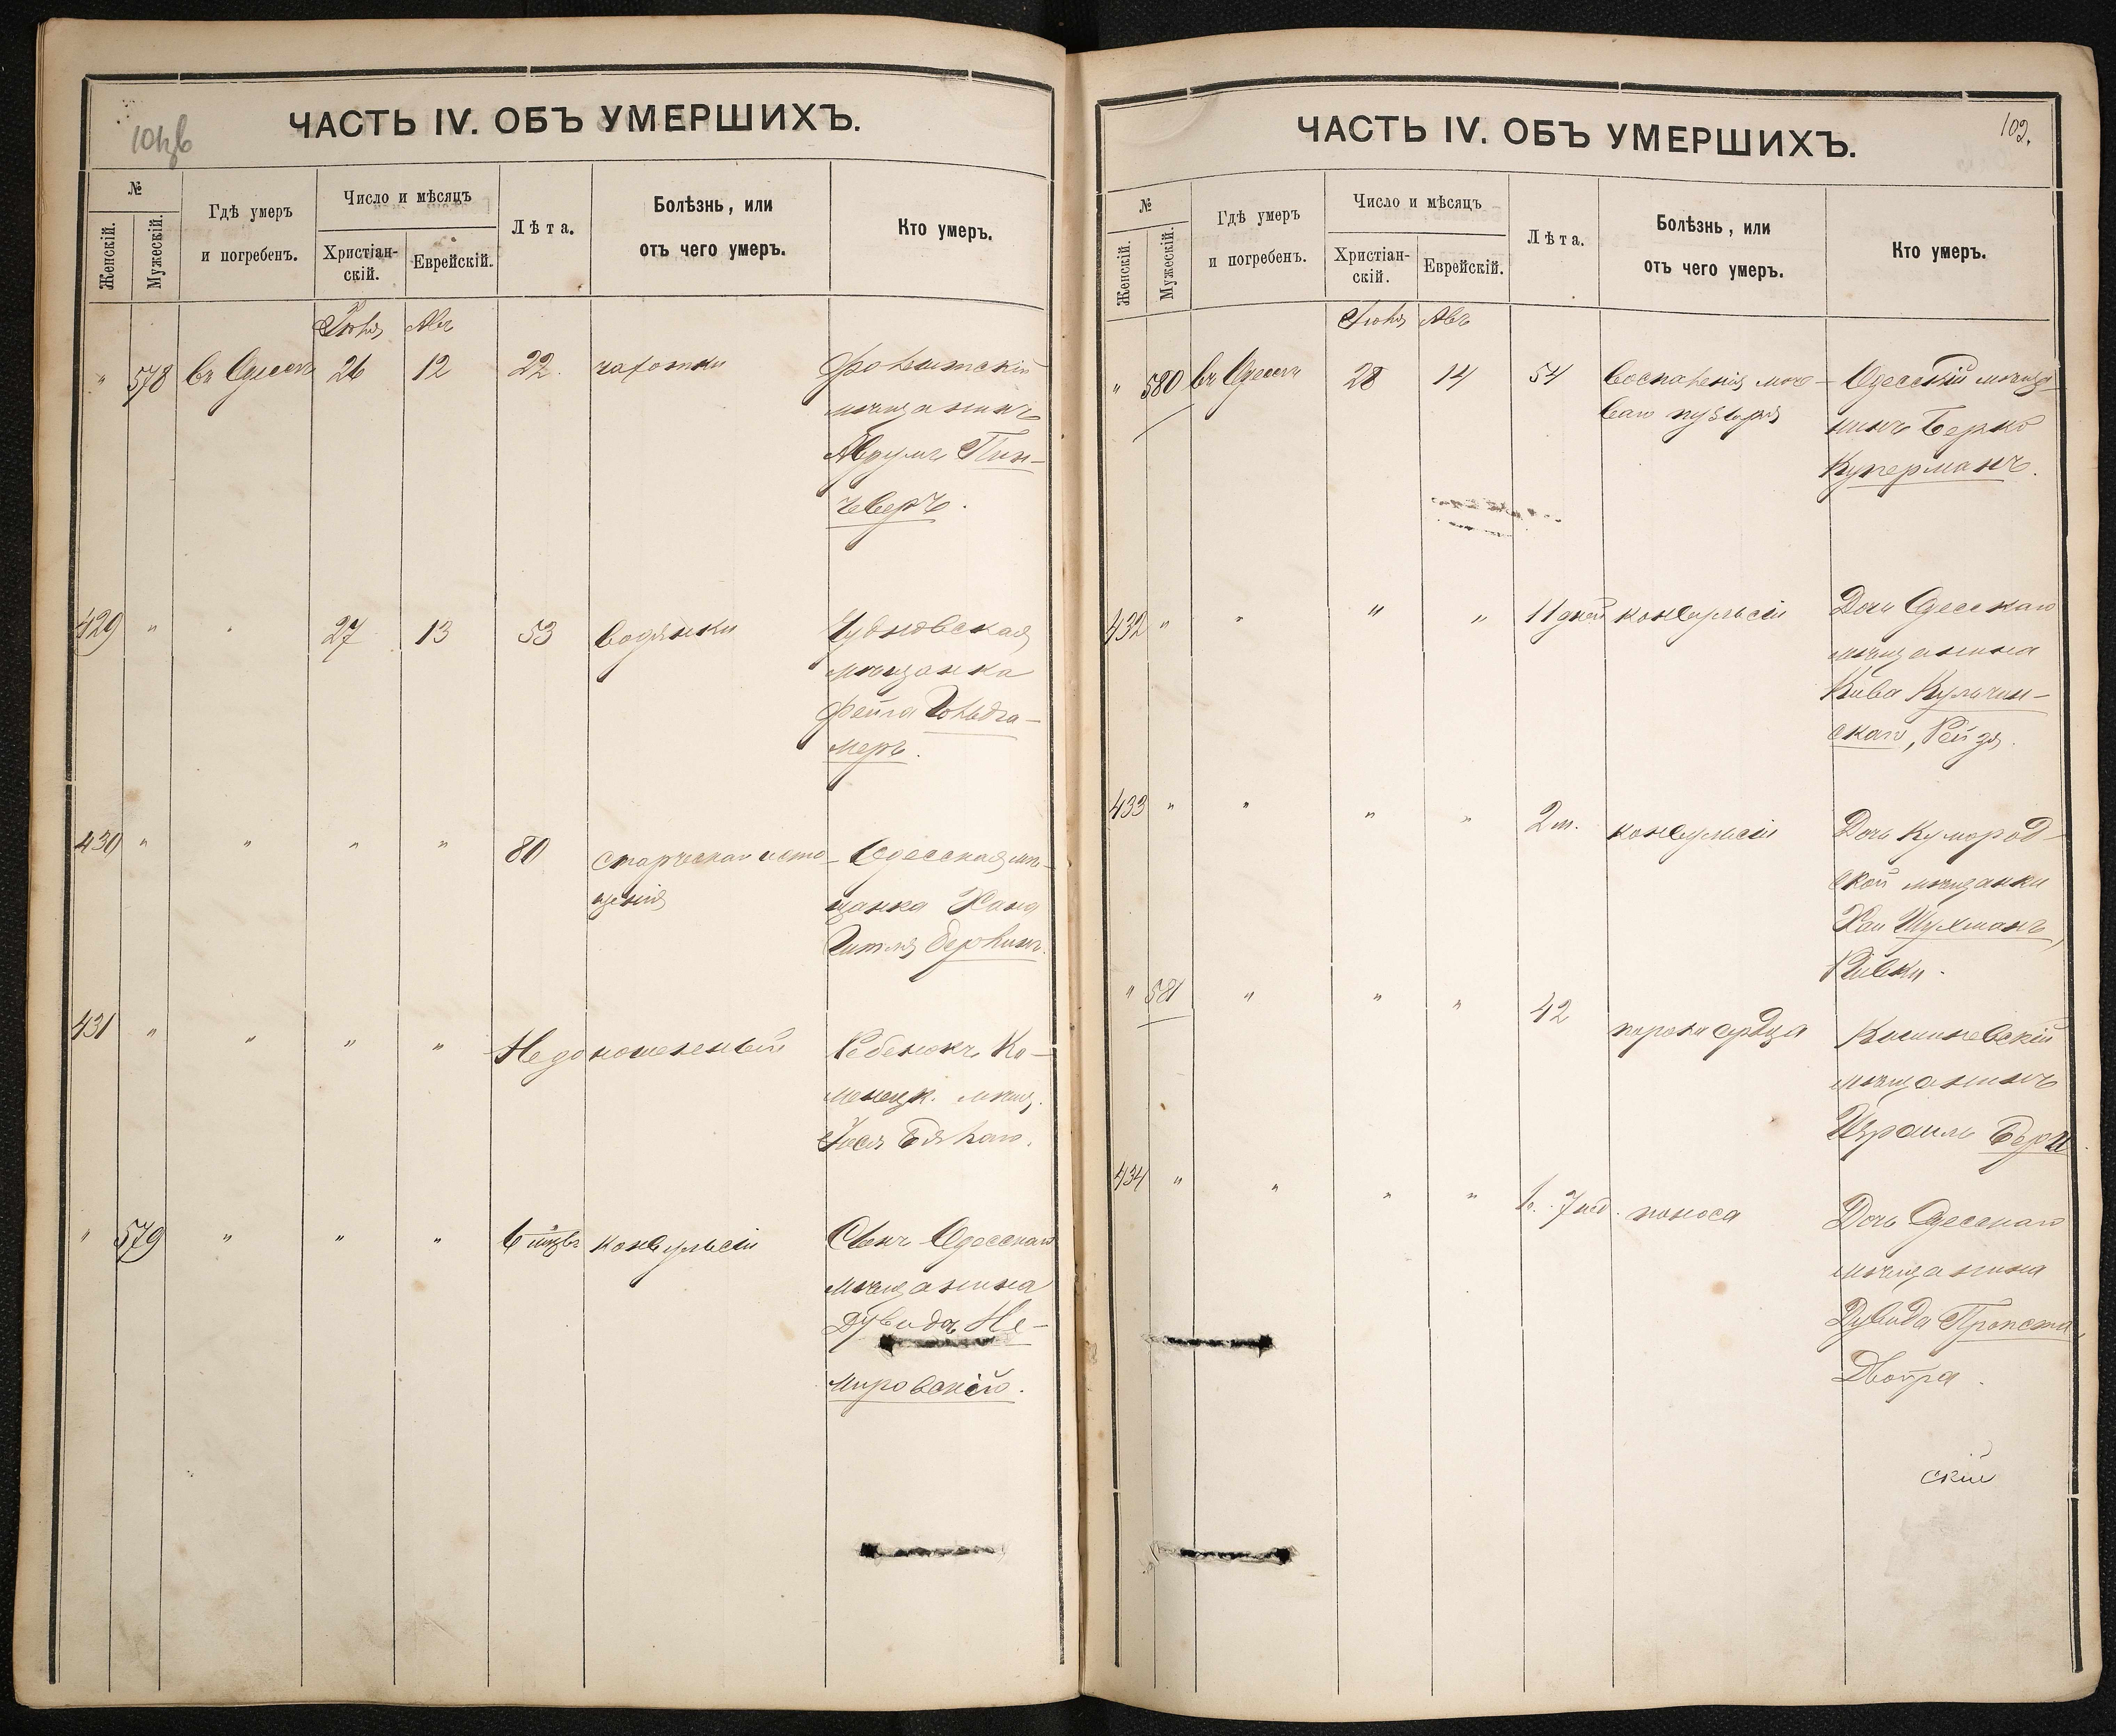 ЧАСТЬ IV. ОБЪ УМЕРШИХЪ.
№
Женскій.
Мужескій.
Гдѣ умеръ
и погребенъ.
Число и мѣсяцъ
Христіан-
скій.
Еврейскій.
Лѣта.
Болѣзнь, или
отъ чего умеръ.
Кто умеръ.
Іюля Авъ
" 578 въ Одессѣ 26 12 22 чахотки
мѣщанинъ
Аврумъ Пин-
429 " " 27 13 53 водянки Чудновская
мѣщанка
Фейга Гольдга-
меръ.
430 " " " " 80 старческаго исто- Одесская мѣ-
щенія щанка Хана
Гитля
431 " " " " Недоношенный Ребенокъ Ка-
менецк. мѣщ.
" 579 " " " 6 мцвъ конвульсіи Сынъ Одесскаго
мѣщанина
Дувидъ Не-
мировскій.
ЧАСТЬ IV. ОБЪ УМЕРШИХЪ.
102.
№
Женскій.
Мужескій.
Гдѣ умеръ
и погребенъ.
Число и мѣсяцъ
Христіан-
скій.
Еврейскій.
Лѣта.
Болѣзнь, или
отъ чего умеръ.
Кто умеръ.
Іюля Авъ
" 580 въ Одессѣ 28 14 54 воспаленія моче- Одесскій мѣща-
ваго пузыря нинъ Берко
Куперманъ.
432 " " " " 11 дней конвульсіи Дочь Одесскаго
мѣщанина
Кива Кульчин-
скаго, Рейзя.
433 " " " " 2 м. конвульсіи Дочь
ской мѣщанки
Хаи Шухманъ,
Ривки.
" 581 " " " 42 порока сердца Кишиневскій
мѣщанинъ
Израиль
434 " " " " 7 нед. поноса Дочь Одесскаго
мѣщанина
Дувида
Двойра.
скій